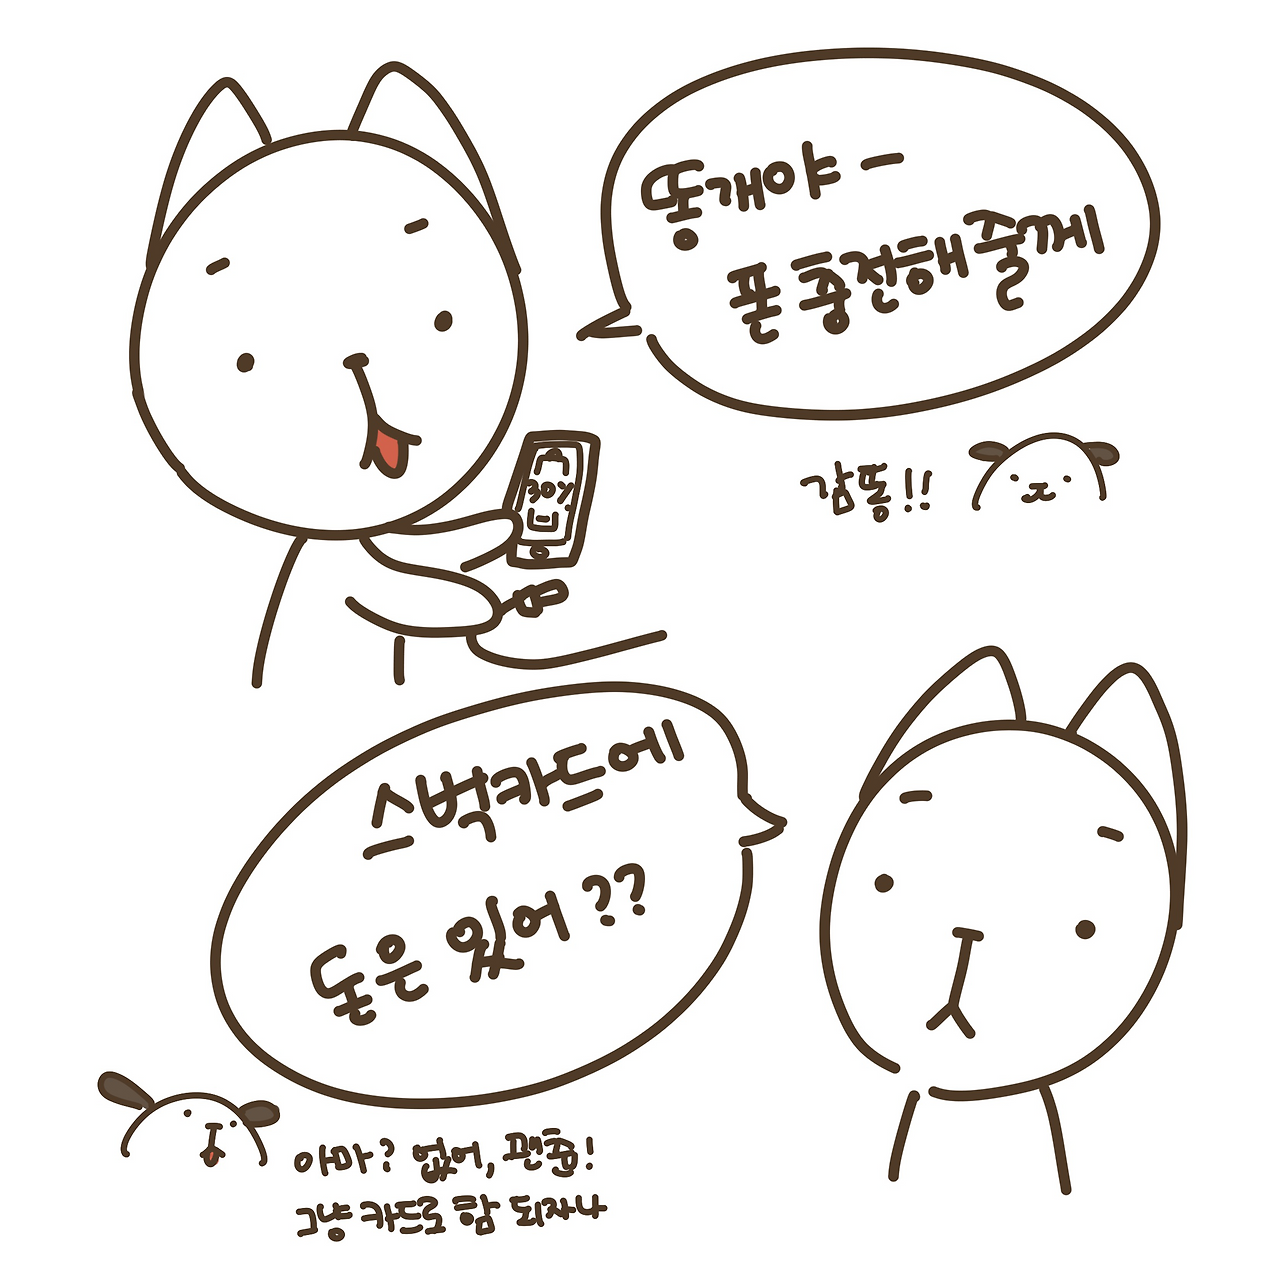 똥개야 -
폰 충전해줄께
30%
감똥!!
스벅카드에
돈은 있어??
아마? 없어, 괜춘!
그냥 카드로 함 되자나